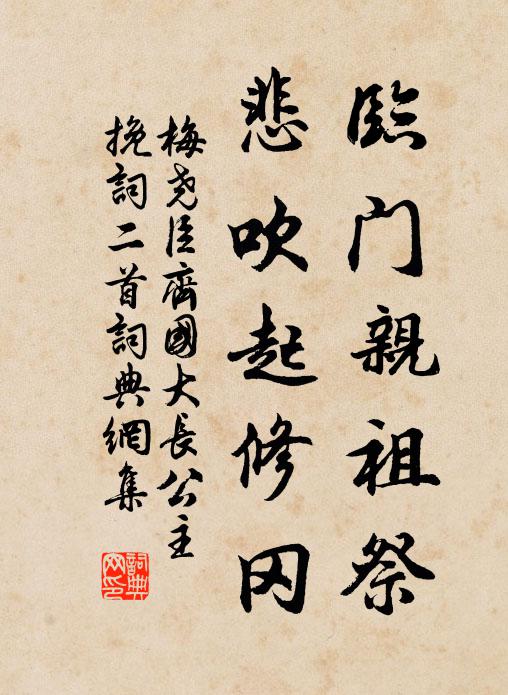 臨门親祖祭
悲吹起修冈
梅尧臣齊國大長公主
挽詞二首詞典網集
詞典网印